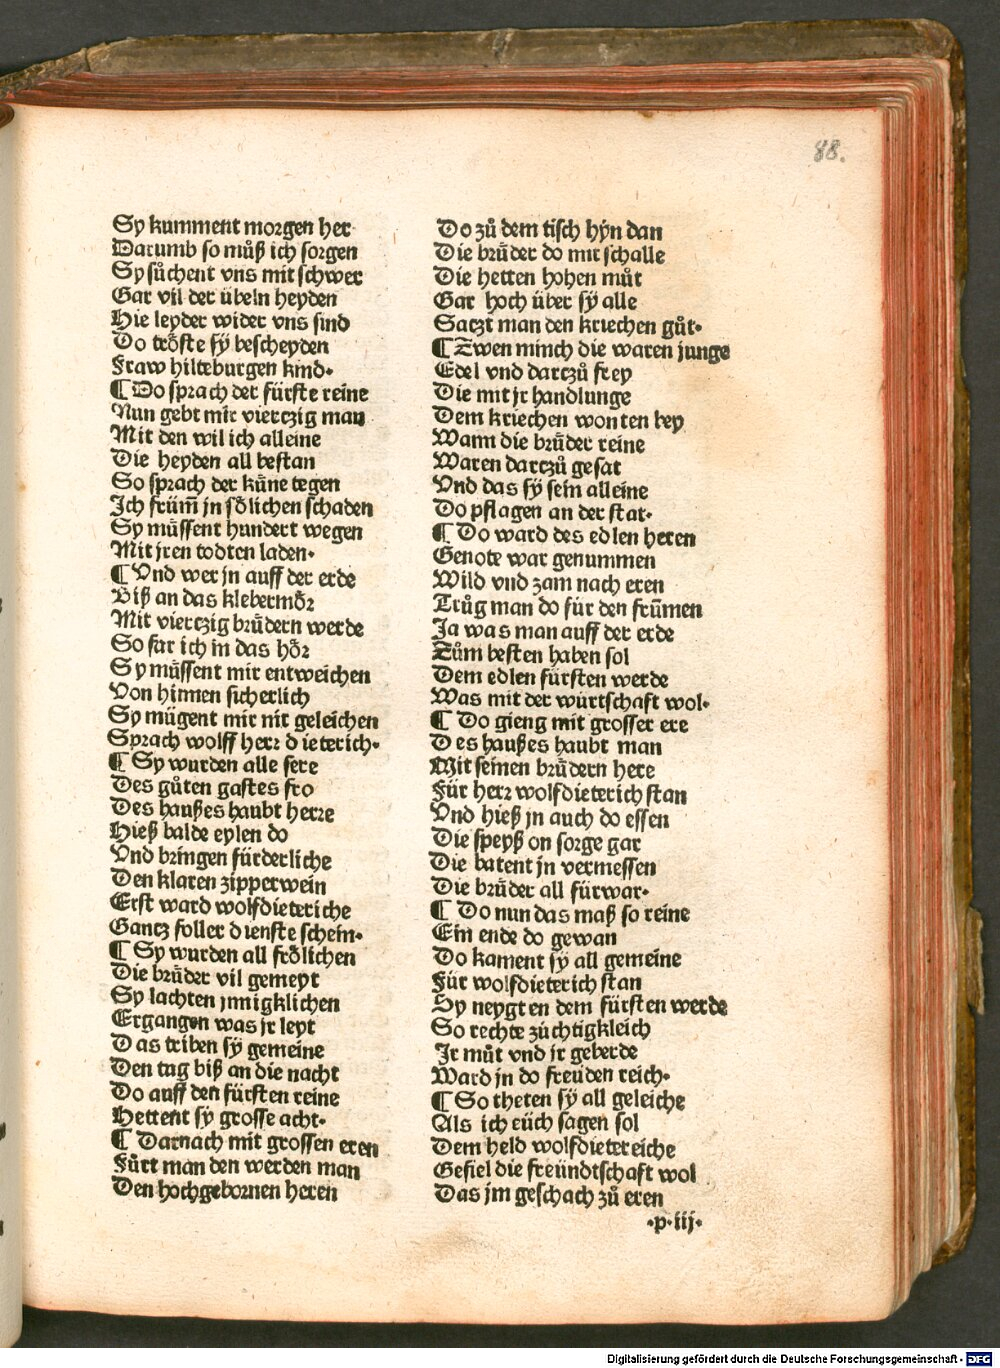 88.
Sy kumment morgen her
Darumb so můß ich sorgen
Sy sůchent vns mit schwer
Gar vil der übeln heyden
Hie leyder wider vns sind
Do troͤste sÿ bescheyden
Fraw hilteburgen kind·
¶ Do sprach der fürste reine
Nun gebt mir viertzig man
Mit den wil ich alleine
Die heyden all bestan
So sprach der küne tegen
Ich frům̄ jn soͤlichen schaden
Sy müssent hundert wegen
Mit jren todten laden·
¶ Vnd wer jn auff der erde
Biß an das klebermoͤr
Mit viertzig brüdern werde
So far ich in das hoͤr
Sy müssent mir entweichen
Von hinnen sicherlich
Sy mügent mir nit geleichen
Sprach wolff herr dieterich·
¶ Sy wurden alle sere
Des gůten gastes fro
Des haußes haubt herre
Hieß balde eylen do
Vnd bringen fürderliche
Den klaren zipperwein
Erst ward wolfdieteriche
Gantz foller dienste schein·
¶ Sy wurden all froͤlichen
Die brüder vil gemeyt
Sy lachten jnnigklichen
Ergangen was jr leyt
Das triben sÿ gemeine
Den tag biß an die nacht
Do auff den fürsten reine
Hettent sy grosse acht·
¶ Darnach mit grossen eren
Fůrt man den werden man
Den hochgebornen heren
Do zů dem tisch hÿn dan
Die brüder do mit schalle
Die hetten hohen můt
Gar hoch über sÿ alle
Satzt man den kriechen gůt·
¶ Zwen minch die waren junge
Edel vnd dartzů frey
Die mit jr handlunge
Dem kriechen wonten bey
Wann die brüder reine
Waren dartzů gesat
Vnd das sÿ sein alleine
Do pflagen an der stat·
¶ Do ward des edlen heren
Genote war genummen
Wild vnd zam nach eren
Trůg man do für den frümen
Ja was man auff der erde
Zům besten haben sol
Dem edlen fürsten werde
Was mit der würtschaft wol·
¶ Do gieng mit grosser ere
Des haußes haubt man
Mit seinen brüdern here
Für herr wolfdieterich stan
Vnd hieß jn auch do essen
Die speyß on sorge gar
Die batent jn vermessen
Die brüder all fürwar·
¶ Do nun das maß so reine
Ein ende do gewan
Do kament sÿ all gemeine
Für wolfdieterich stan
Sy neygten dem fürsten werde
So rechte züchtigkleich
Jr můt vnd jr geberde
Ward jn do freuden reich·
¶ So theten sÿ all geleiche
Als ich eüch sagen sol
Dem held wolfdietereiche
Gefiel die freündtschaft wol
Das jm geschach zů eren
·p·iij·
Digitalisierung gefördert durch die Deutsche Forschungsgemeinschaft - DFG